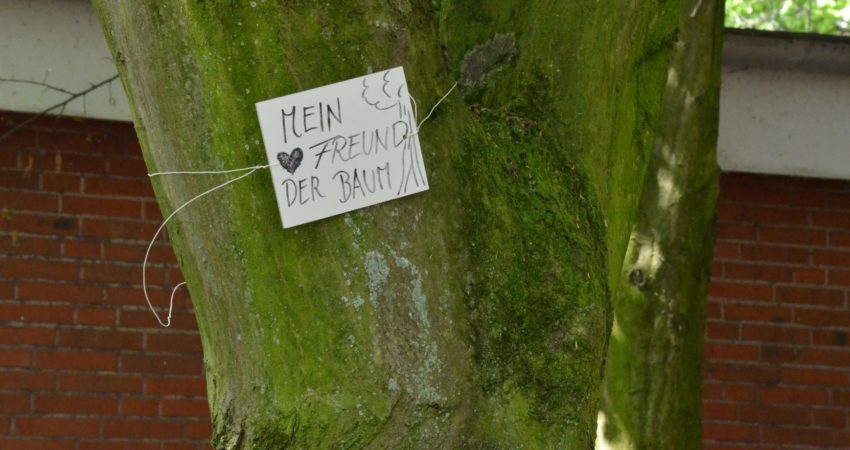 MEIN
FREUND
DER BAUM